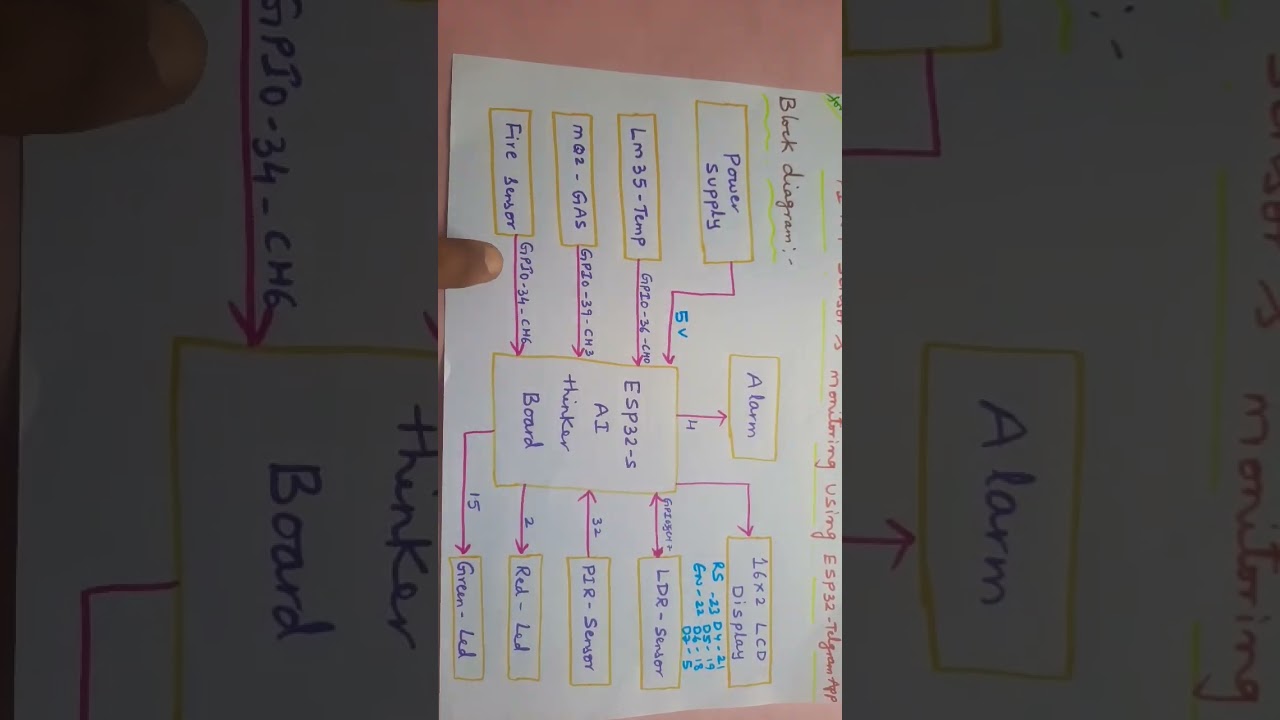 Sensor's monitoring using ESP32-TelgramApp
Block diagram:-
Power
Supply
5v
Alarm
4
16x2 LCD
Display
RS -23 D4-21
EN-22 D5-19
D6-18
D7-5
Lm35-Temp
GPIO-36-CH0
mQ2-GAS
GPIO-39-CH3
Fire Sensor
GPIO-34-CH6
ESP32-S
AI
thinker
Board
LDR-Sensor
32
PIR-Sensor
2
Red-Led
15
Green-Led
GPIO-34-CH6
thinker
Board
Alarm
Sensor's monitoring